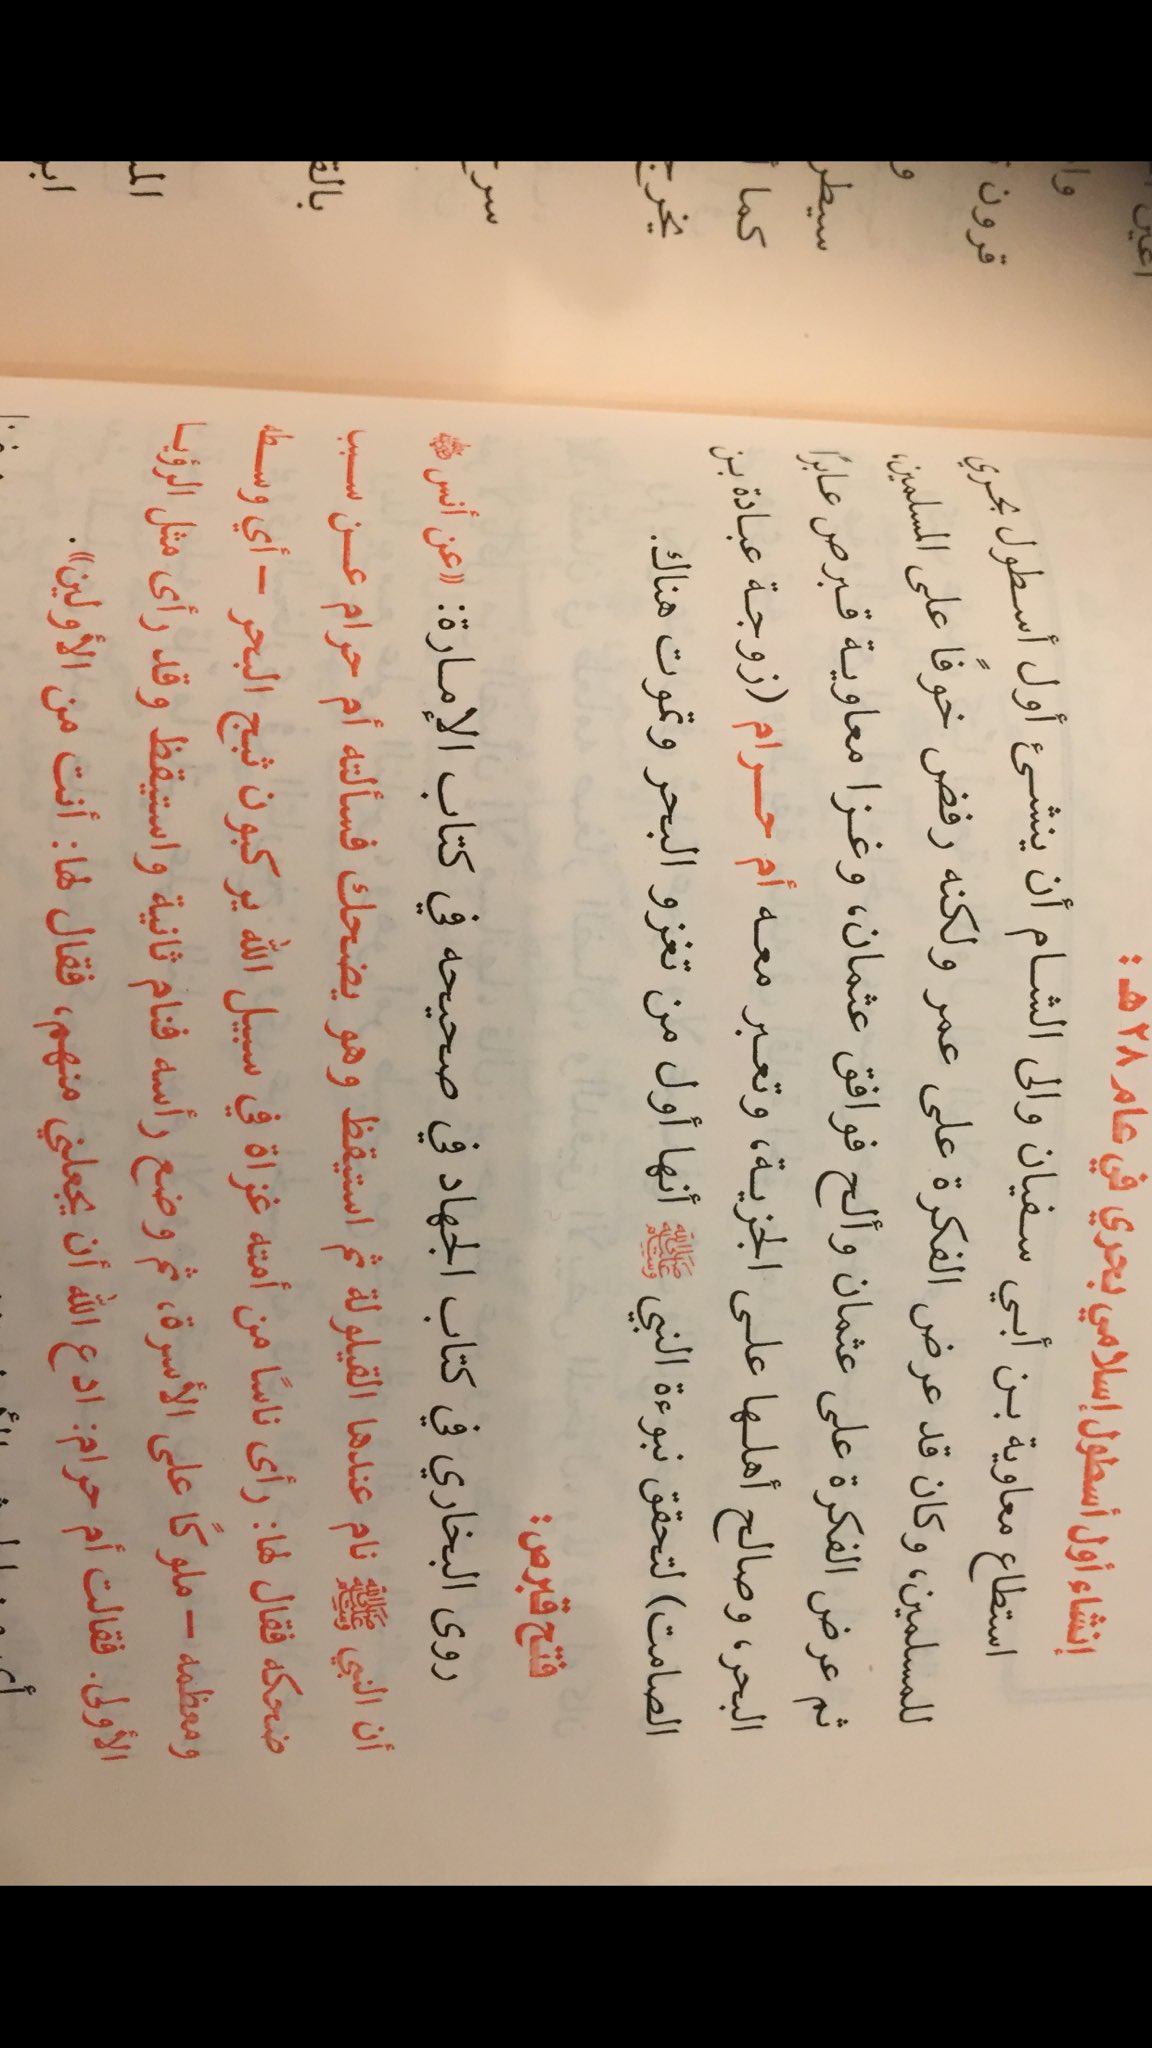 إنشاء أول أسطول إسلامي بحري في عام ٢٨ هـ:
استطاع معاوية بن أبي سفيان والى الشام أن ينشئ أول أسطول بحري
للمسلمين، وكان قد عرض الفكرة على عمر ولكنه رفض خوفًا على المسلمين،
ثم عرض الفكرة على عثمان وألح فوافق عثمان، وغزا معاوية قبرص عابرًا
البحر، وصالح أهلها على الجزية، وتعبر معه أم حرام (زوجة عبادة بن
الصامت) لتحقق نبوءة النبي ﷺ أنها أول من تغزو البحر وتموت هناك.
فتح قبرص:
روى البخاري في كتاب الجهاد في صحيحه في كتاب الإمارة: «عن أنس
أن النبي ﷺ نام عندها القيلولة ثم استيقظ وهو يضحك فسألته أم حرام عن سبب
ضحكه فقال لها: رأى ناسًا من أمته غزاة في سبيل الله يركبون ثبج البحر – أي وسطه
ومعظمه – ملوكًا على الأسرة، ثم وضع رأسه فنام ثانية واستيقظ وقد رأى مثل الرؤيا
الأولى. فقالت أم حرام: ادع الله أن يجعلني منهم، فقال لها: أنت من الأولين».
وا
قرون
و
سيطر
كما
يخرج
سرح
بالق
الم
ابن